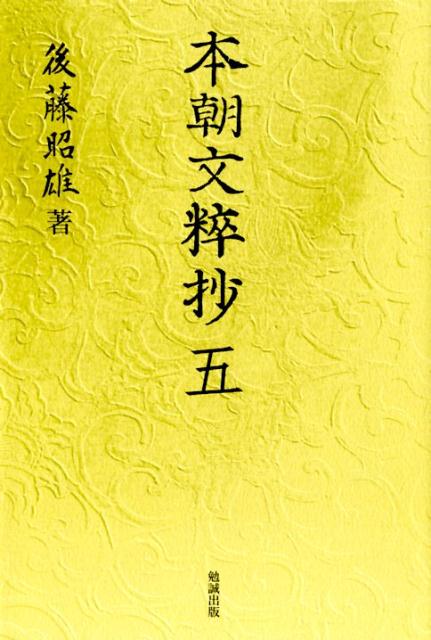 本朝文粹抄 五
後藤昭雄 著
勉誠出版